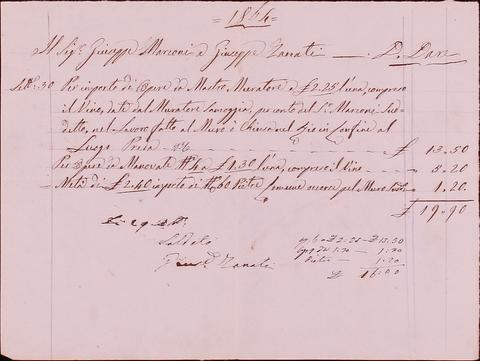 = 1864 =
Il Sig.r Giuseppe Marconi a Giuseppe Zanati — D. Dare
Sett.e 30 Per importo di Opere da Mastro Muratore a £ 2.25 l'una compreso
il Vino, date dal Muratore per conto del S.r Marconi Sud-
detto, nel Lavoro fatto al Muro e Chiusa nel in Confine al
Luogo Presa N.6 £ 13.50
Per Opere da Manovale N.o 4 a £ 1.30 l'una, compreso il Vino 5.20
Metà di £ 2.40 importo di N.o 60 Pietre pel Muro 1.20
£ 19.90
Saldato
Zanati
op. 6 a £ 2.25 - £ 13.50
1.30 - 1.30
Pietre - 1.20
£ 16.00